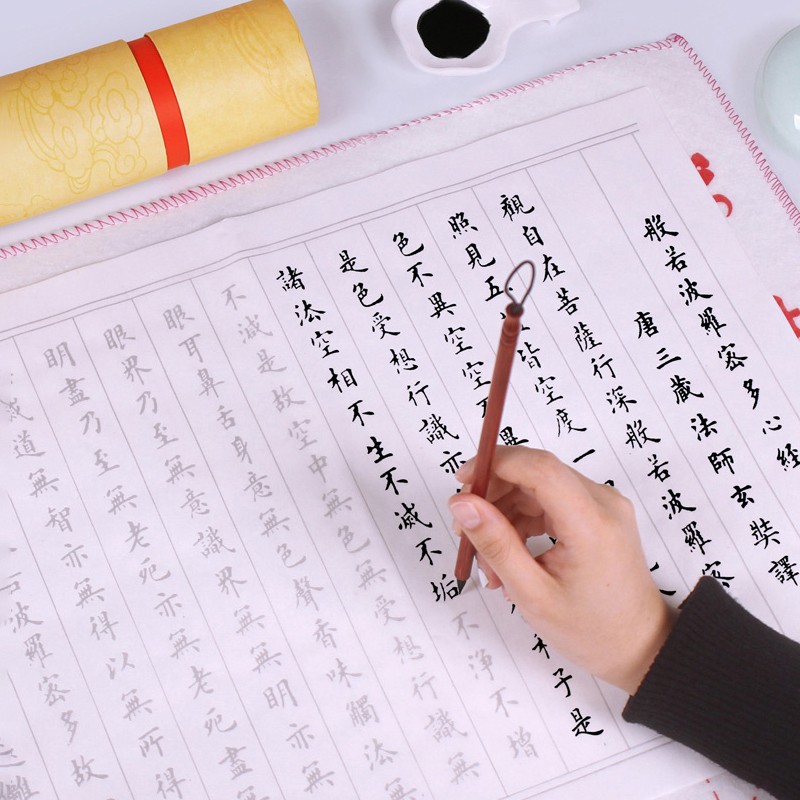 般若波羅密多心經
唐三藏法師玄奘譯
觀自在菩薩行深般若波羅密
照見五 皆空度一
色不異空空不異
是色受想行識亦 利子是
諸法空相不生不滅不垢不淨不增
不滅是故空中無色無受想行識無
眼耳鼻舌身意無色聲香味觸法無
眼界乃至無意識界無無明亦無
明盡乃至無老死亦無老死盡無
道無智亦無得以無所得
波羅密多故